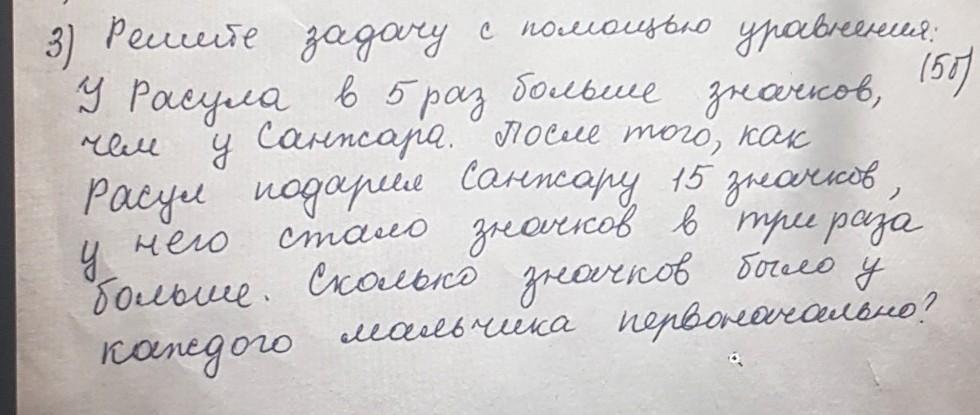 3) Решите задачу с помощью уравнения:
(5б)
У Расула в 5 раз больше значков,
чем у Санжара. После того, как
Расул подарил Санжару 15 значков,
у него стало значков в три раза
больше. Сколько значков было у
каждого мальчика первоначально?